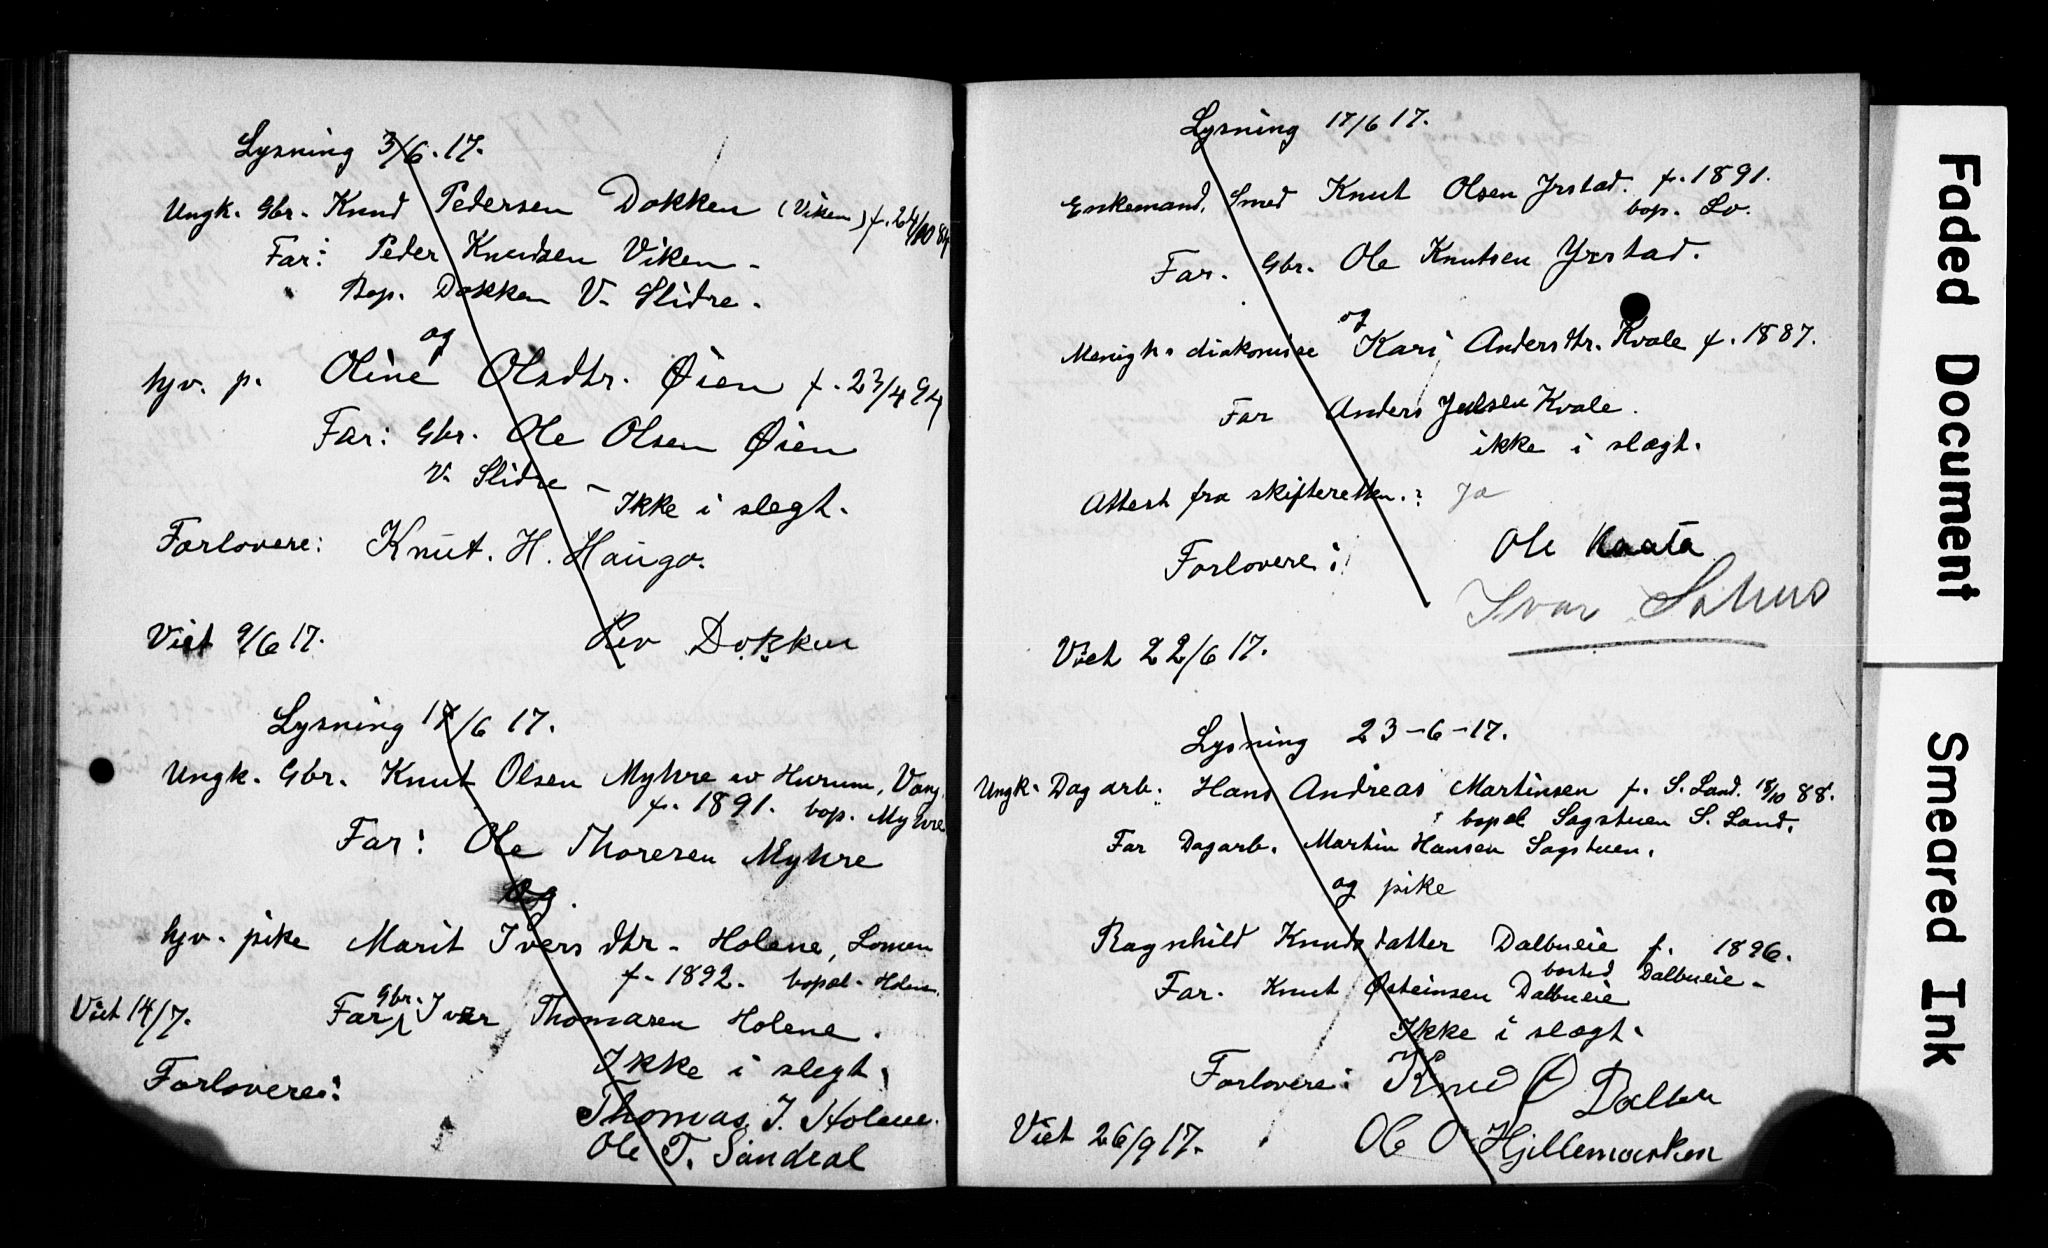 Lysning 3/6.17.
Ungk. Gbr. Knud Pedersen Dokken (Viken) f. 24/10 84
Far: Peder Knudsen Viken -
Bop. Dokken V. Slidre.
og
hjv. p. Oline Olsdtr. Øien f. 23/4 94
Far: Gbr. Ole Olsen Øien
V. Slidre -
Ikke i slegt.
Forlovere: Knut. H. Haugo.
Viet 9/6 17. Dokken
Lysning 17/6 17.
Ungk. Gbr. Knut Olsen Myhre av Hurum, Vang.
f. 1891. bop. Myhre
Far: Ole Thoresen Myhre
Og.
hjv. pike Marit Ivers dtr. Holene, Lomen
f. 1892. bopæl. Holene.
Viet 14/7. Far Gbr. Iver Thomasen Holene.
Ikke i slegt.
Forlovere:
Thomas. I. Holene.
Ole T. Søndrol
Lysning 17/6 17.
Enkemand. Smed Knut Olsen Yrstad. f. 1891.
bop. Lo.
Far. Gbr. Ole Knutsen Yrstad.
og
Menigh. diakonisse Kari Andersdtr. Kvale f. 1887.
Far Anders Julsen Kvale.
ikke i slægt.
Attest fra skifteretten.? Ja
Forlovere: Ole
Ivar
Viet 22/6 17.
Lysning 23-6-17.
Ungk. Dagarb. Hans Andreas Martinsen f. S. Land. 18/10 88.
bopæl Sagstuen S. Land.
Far Dagarb. Martin Hansen Sagstuen.
og pike
Ragnhild Knudsdatter Dalbueie f. 1896.
bosted Dalbueie -
Far. Knut Østeinsen Dalbueie
Ikke i slægt.
Forlovere: Knud Ø
Viet 26/9 17. Ole O Hjellemarken
Faded Document
Smeared Ink